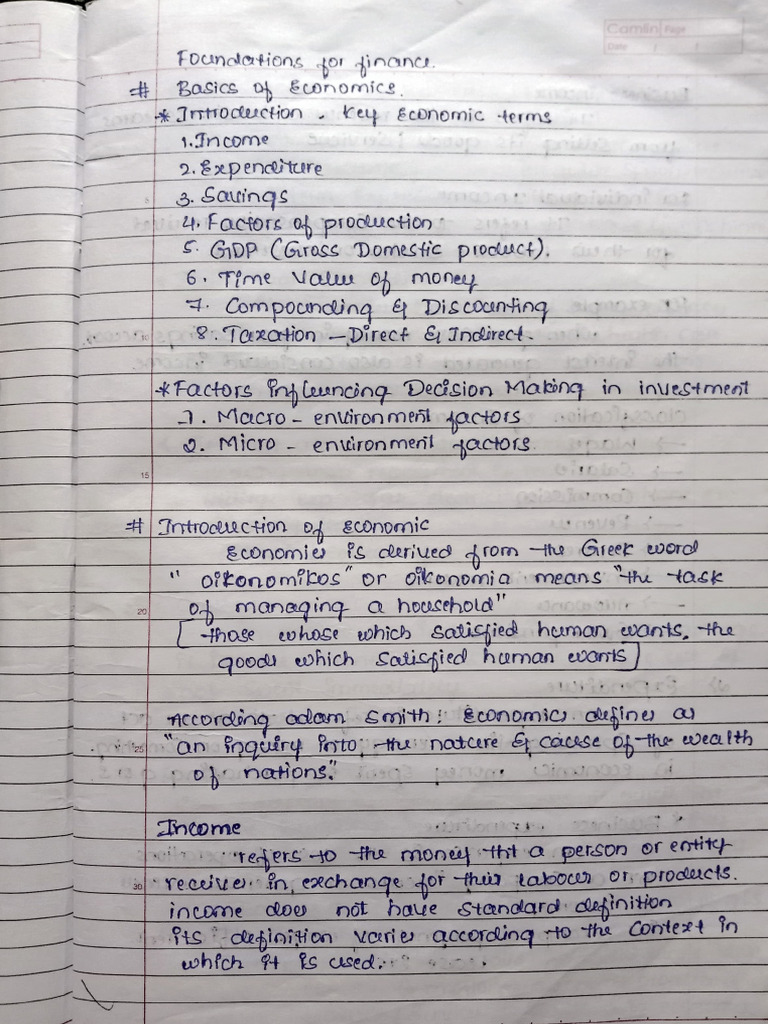 Camlin Page
Date
Foundations for finance.
# Basics of Economics.
* Introduction - Key Economic terms
1. Income
2. Expenditure
3. Savings
4. Factors of production
5. GDP (Gross Domestic product).
6. Time Value of money
7. Compounding & Discounting
10
8. Taxation - Direct & Indirect.
* Factors influencing Decision Making in investment
1. Macro - environment factors
2. Micro - environment factors
15
# Introduction of Economic
Economics is derived from the Greek word
" oikonomikos" or oikonomia means "the task
20
of managing a household"
[those whose which satisfied human wants. the
goods which satisfied human wants]
According adam smith: Economics defines as
25
"an inquiry into; the nature & cause of the wealth
of nations."
Income
refers to the money tht a person or entity
30
receive in exchange for their labour or products.
income does not have standard definition
its definition varies according to the context in
which it is used.